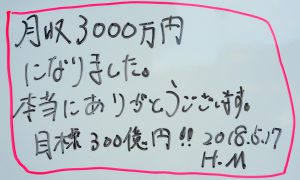 月収3000万円
になりました。
本当にありがとうございます。
目標300億円!! 2018.5.17
H.M